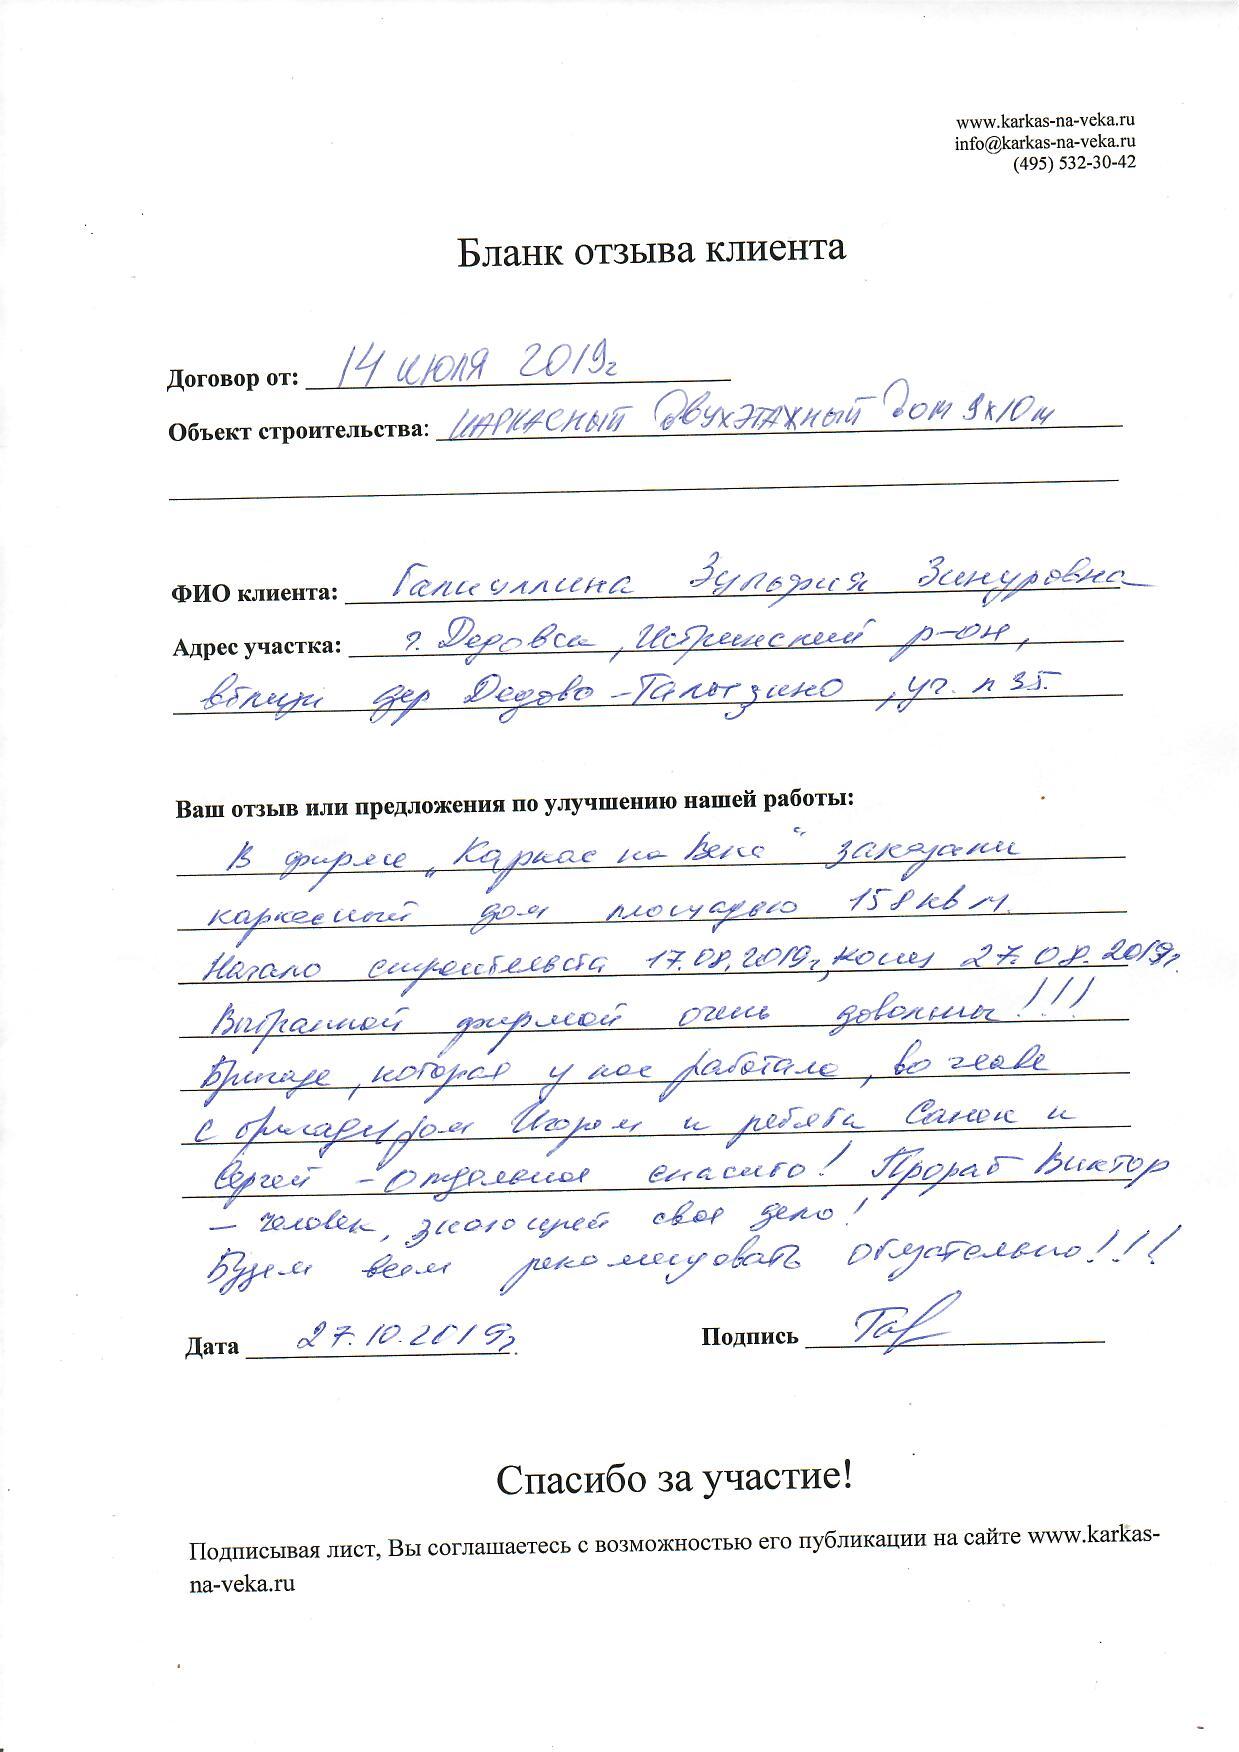 www.karkas-na-veka.ru
info@karkas-na-veka.ru
(495) 532-30-42
Бланк отзыва клиента
Договор от: 14 июля 2019г
Объект строительства: КАРКАСНЫЙ ДВУХЭТАЖНЫЙ ДОМ 9х10м
ФИО клиента: Галиуллина Зульфия Зинуровна
Адрес участка: г. Дедовск, Истринский р-он,
вблизи дер Дедово-Талызино, уч. п 35.
Ваш отзыв или предложения по улучшению нашей работы:
В фирме „Каркас на Века“ заказали
каркасный дом площадью 158 кв м.
Начало строительста 17.08.2019г, конец 27.08.2019г.
Выбранной фирмой очень довольны!!!
Бригаде, которая у нас работала, во главе
с бригадиром Игорем и ребята Санек и
Сергей - отдельное спасибо! Прораб Виктор
- человек, знающий свое дело!
Будем всем рекомендовать обязательно!!!
Дата 27.10.2019г. Подпись Гал
Спасибо за участие!
Подписывая лист, Вы соглашаетесь с возможностью его публикации на сайте www.karkas-
na-veka.ru